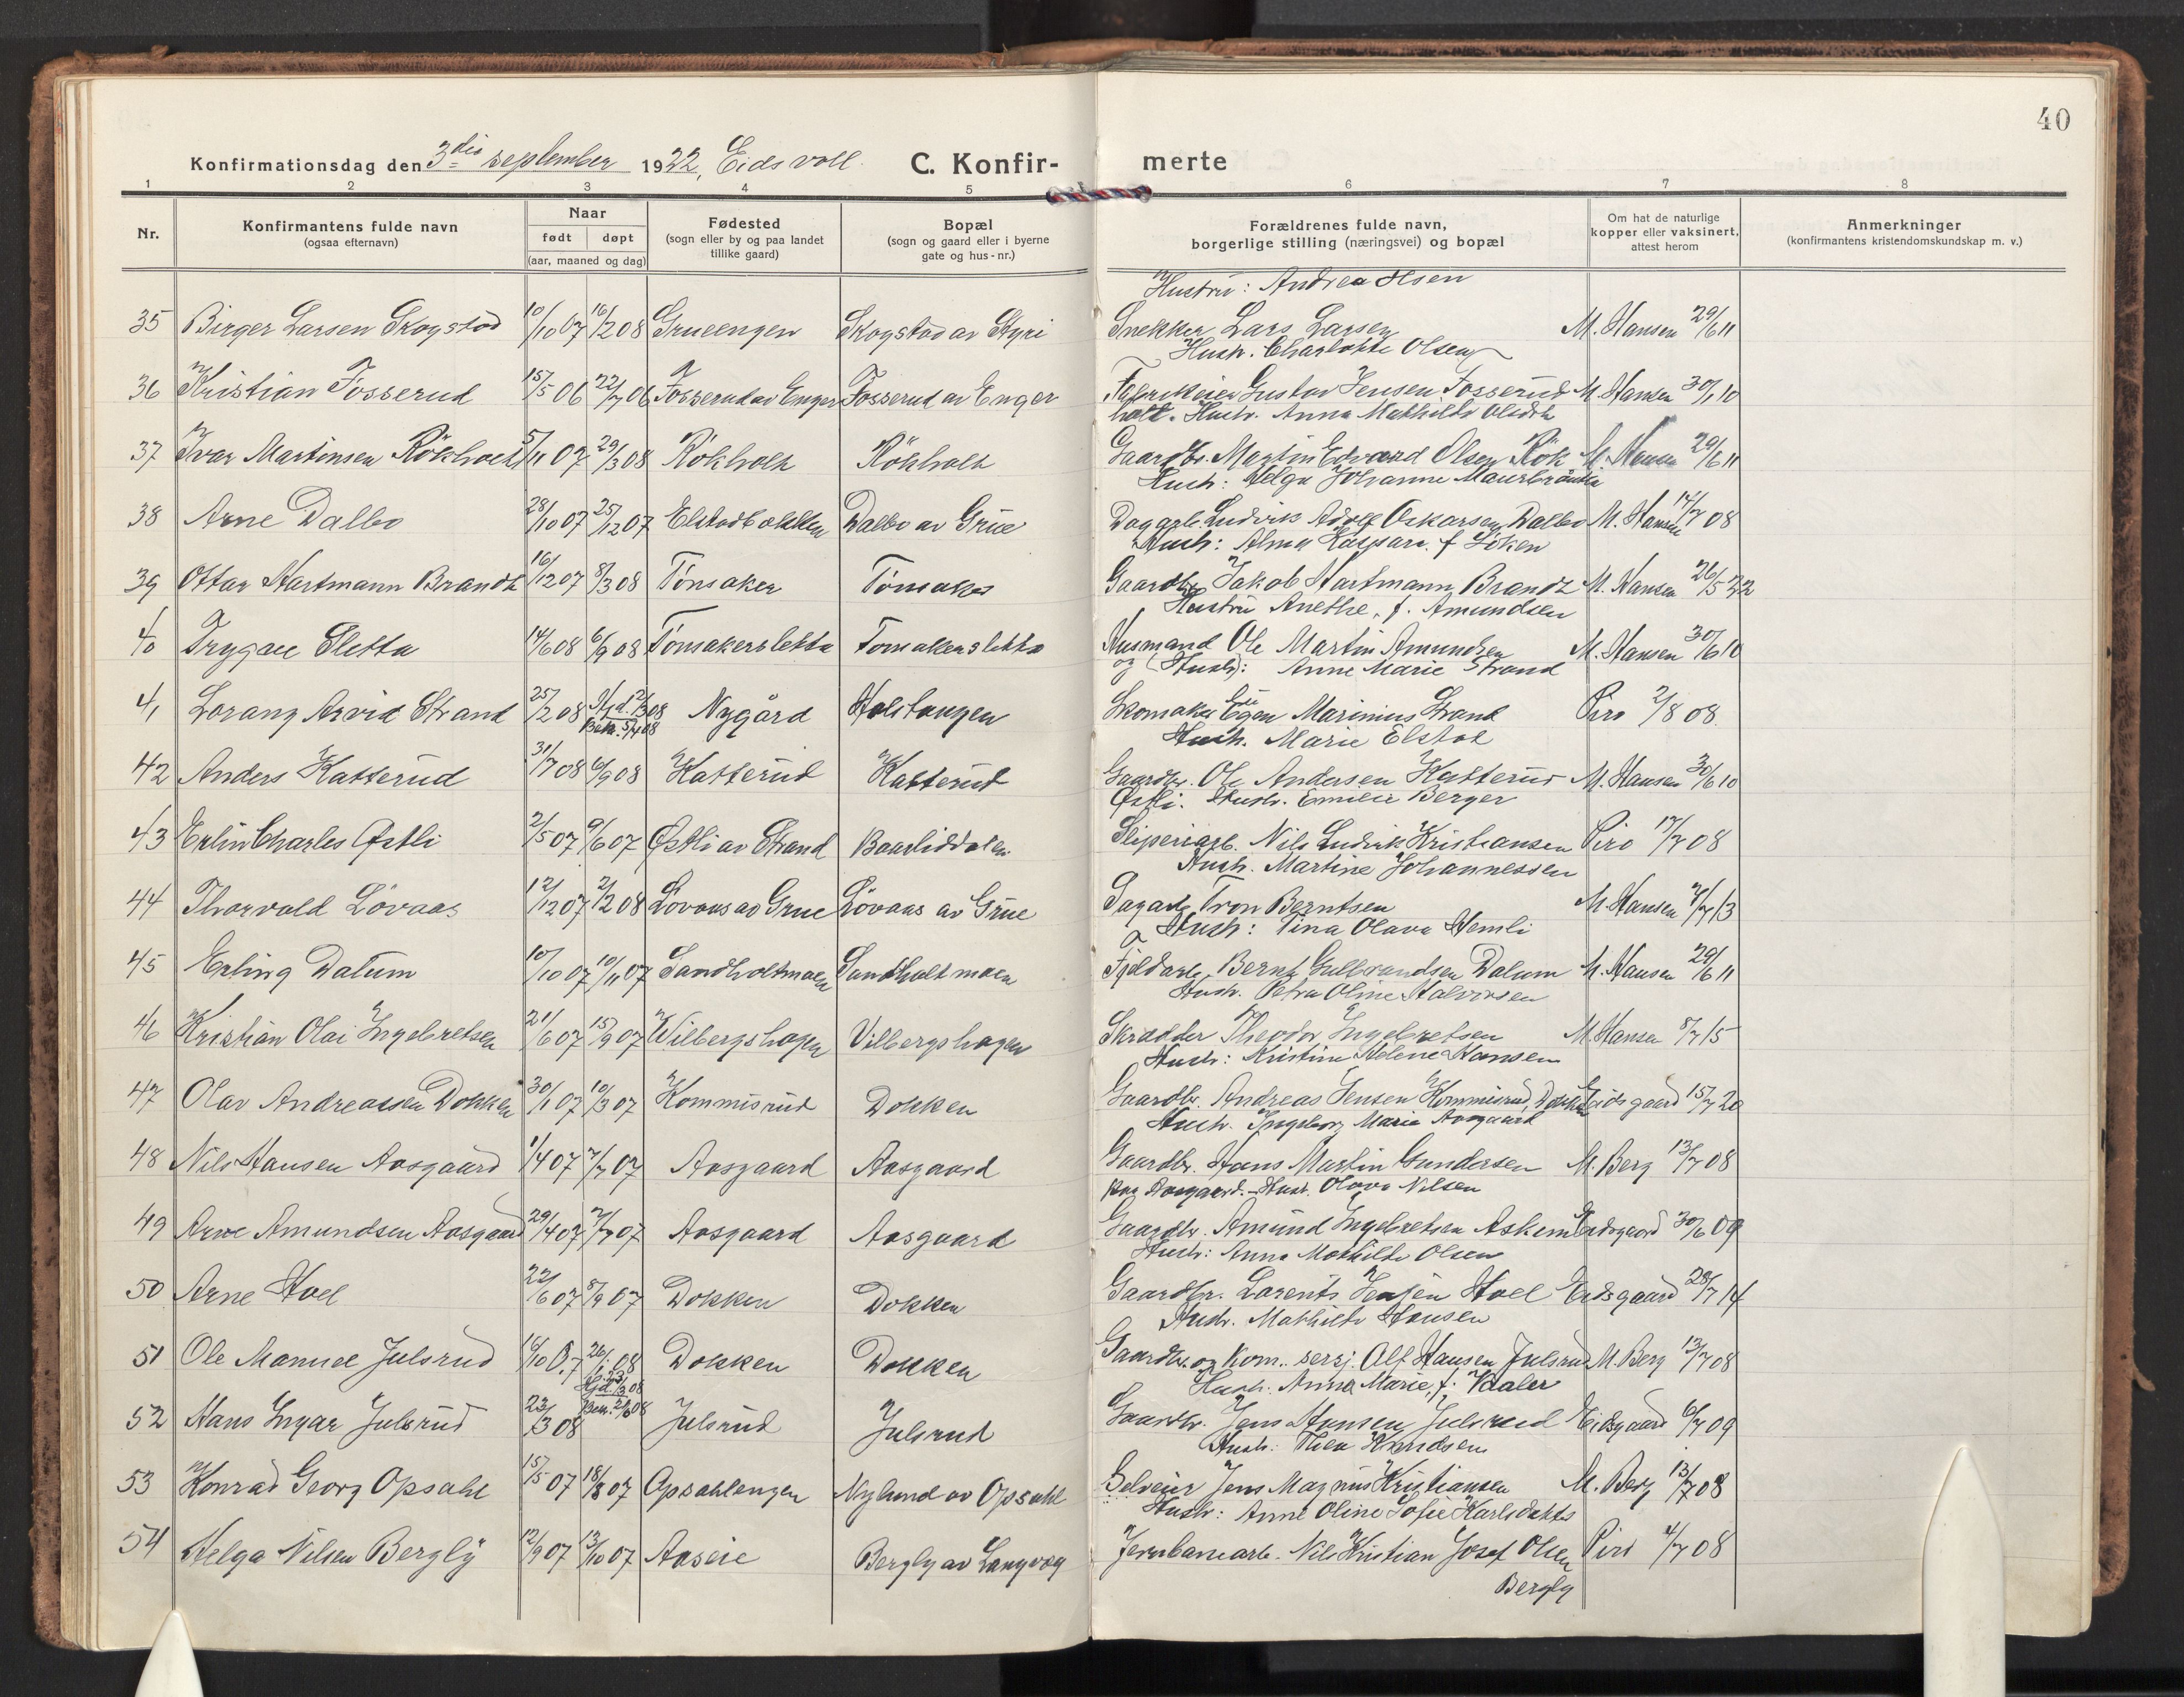 40
Konfirmationsdag den 3die september 1922, Eidsvoll. C. Konfir- merte
1 2 3 4 5 6 7 8
Nr. Konfirmantens fulde navn (ogsaa efternavn) Naar født døpt (aar, maaned og dag) Fødested (sogn eller by og paa landet tillike gaard) Bopæl (sogn og gaard eller i byerne gate og hus-nr.) Forældrenes fulde navn, borgerlige stilling (næringsvei) og bopæl Om hat de naturlige kopper eller vaksinert, attest herom Anmerkninger (konfirmantens kristendomskundskap m. v.)
Hustru: Andrea Olsen
35 Birger Larsen Skogstad 10/10 07 16/2 08 Grueengen Skogstad av Styri Snekker Lars Larsen M. Hansen 29/6 11
Hustr. Charlotte Olsen
36 Kristian Fosserud 15/5 06 22/7 06 Fosserud av Enger Fosserud av Enger Fabrikeier Gustav Jensen Fosserud M. Hansen 30/6 10
holt. Hustr. Anna Mathilde
37 Ivar Martinsen Rökholt 5/11 07 29/3 08 Rökholt Rökholt Gaardbr. Martin Edvard Olsen Rök M. Hansen 29/6 11
Hustr: Helga Johanne
38 Arne Dalbo 28/10 07 25/12 07 Elstadbakken Dalbo av Grue Dagarb. Ludvik Adolf Oskarsen Dalbo M. Hansen 14/7 08
Hustr: Alma Kaspara f. Löken
39 Ottar Hartmann Brandt 16/12 07 8/3 08 Tönsaker Tönsaker Gaardbr. Jakob Hartmann Brandt M. Hansen 26/5 22
Hustru Anethe, f. Amundsen
40 Trygve Sletta 14/6 08 6/9 08 Tönsakersletta Tönsakersletta Husmand Ole Martin Amundsen M. Hansen 30/6 10
og (Hustr): Anne Marie Strand
41 Lorang Arvid Strand 25/2 08 Hjd. 12/3 08 Nygård Holstangen Skomaker Marinius Strand Piro 2/8 08.
Bekr. 5/7 08
Hustr. Marie Elstad
42 Anders Katterud 31/7 08 6/9 08 Katterud Katterud Gaardbr. Ole Andersen Katterud M. Hansen 30/6 10
Østli. Hustr. Emilie Berger
43 Erling Charles Østli 2/5 07 9/6 07 Østli av Strand Baarliddalen Sliperiarb. Nils Ludvik Kristiansen Piro 17/7 08
Hustr. Martine Johannessen
44 Thorvald Lövaas 12/12 07 2/2 08 Lövaas av Grue Lövaas av Grue Dagarb. Tron Berntsen M. Hansen 4/7 13
Hustr: Tina Olava Hemli
45 Erling Dalum 10/10 07 10/11 07 Sandholtmoen Sandholtmoen Fjeldarb. Bernt Gulbrandsen Dalum M. Hansen 29/6 11
Hustr. Petra Oline Halvorsen
46 Kristian Olai Ingebretsen 21/6 07 15/9 07 Vilbergshagen Vilbergshagen Skrædder Theodor Ingebretsen M. Hansen 8/7 15
Hustr: Kristine Helene Hansen
47 Olav Andreassen Dokken 30/1 07 10/3 07 Kommisrud Dokken Gaardbr. Andreas Jensen Kommisrud, Dokken Eidsgaard 15/7 20
Hustr. Ingeborg Marie Aasgaard
48 Nils Hansen Aasgaard 1/4 07 7/7 07 Aasgaard Aasgaard Gaardbr. Hans Martin Gundersen M. Berg 13/7 08
paa Aasgaard. - Hustr. Olava Nilsen
49 Arne Amundsen Aasgaard 29/4 07 7/7 07 Aasgaard Aasgaard Gaardbr. Amund Ingebretsen Askem Eidsgaard 30/6 09
Hustr: Anna Mathilde Olsen
50 Arne Hoel 22/6 07 8/9 07 Dokken Dokken Gaardbr. Lorents Jensen Hoel Eidsgaard 28/7 14
Hustr. Mathilde Hansen
51 Ole Manuel Julsrud 16/10 07 26/1 08 Dokken Dokken Gaardbr. og Kom. sersj. Alf Hansen Julsrud M. Berg 13/7 08
Hustr. Anna Marie, f. Vaaler
Hjd. 23/3 08
52 Hans Ingar Julsrud 23/3 08 Bekr. 21/6 08 Julsrud Julsrud Gaardbr. Jens Hansen Julsrud Eidsgaard 6/7 09
Hustr. Thea Knudsen
53 Konrad Georg Opsahl 15/5 07 18/8 07 Opsahlengen Nylund av Opsahl Selveier Jens Magnus Kristiansen M. Berg 13/7 08
Hustr: Anne Oline Sofie Karlsdatter
54 Helga Nilsen Bergly 12/9 07 13/10 07 Aaseie Bergly av Langvag Jernbanearb. Nils Kristian Josef Olsen Piro 4/7 08
Bergly